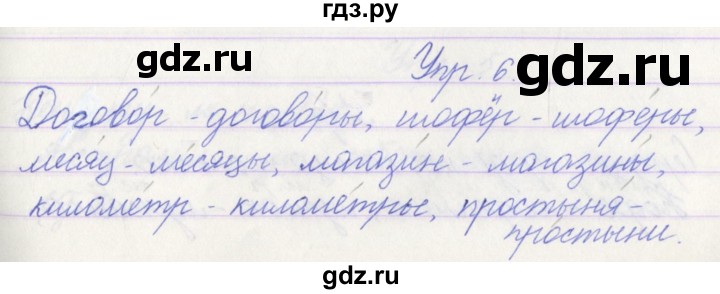 гдз.ру
gdz.ru
gdz.ru
Упр. 6.
Догово́р - догово́ры, шофёр - шофёры,
ме́сяц - ме́сяцы, магази́н - магази́ны,
киломе́тр - киломе́тры, простыня́ -
про́стыни.
gdz.ru
gdz.ru
gdz.ru